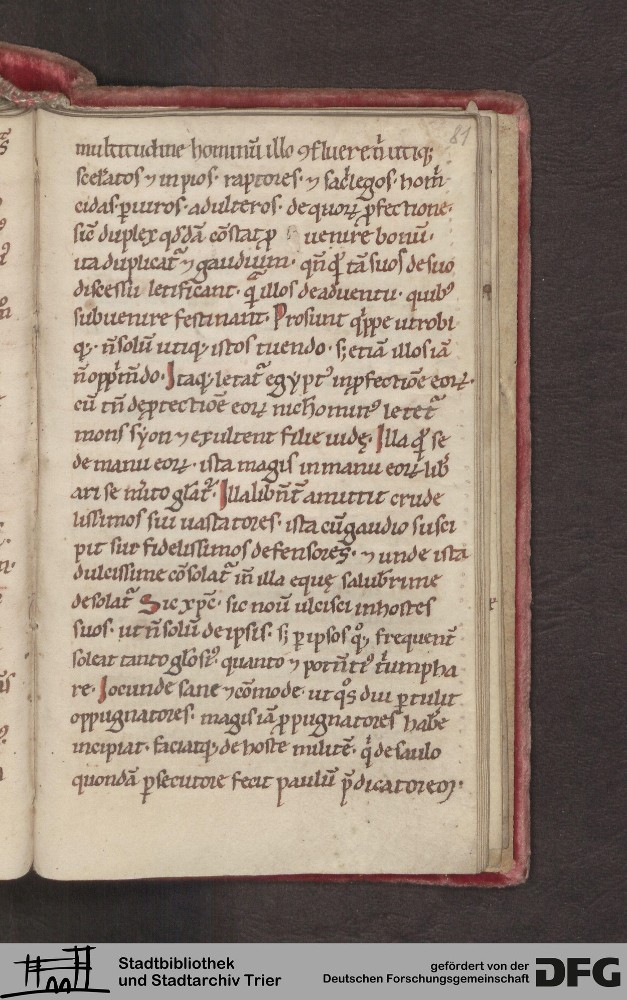 81
multitudine hominū illo ꝯfluere n̄ utiq;
scel̓atos ⁊ inpios· raptores· ⁊ sac̓legos· hom̄i
cidas· ꝑiuros· adulteros· de quoꝝ ꝓfectione·
sic̄ duplex qđdā cōstat ꝓ uenire bonū·
ita duplicat᷑ ⁊ gaudium· qn̄ q̓ꝫ tā suos de suo
discessu letificant· q̓ illos de aduentu· quibꝰ
subuenire festinant· Prosunt q̓ppe utrobi
q;· n̄ solū utiq; istos tuendo· s; etiā illos iā
n̄ opp̓m̄do· Itaq; letat᷑ egẏptꝰ in ꝓfectiōe eoꝝ·
cū tn̄ de ꝓtectiōe eoꝝ nichominꝰ letet᷑
mons sẏon ⁊ exultent filie iudę· Illa q̓ꝫ se
de manu eoꝝ· ista magis in manu eoꝝ lib̓
ari se m̓ito gl̄at᷑· Illa libn̄t̄ amittit crude
lissimos suū uastatores· ista cū gaudio susci
pit sui fidelissimos defensores· ⁊ unde ista
dulcissime cōsolat᷑ in̄ illa eque salub̓rime
desolat᷑ Sic xp̄c· sic nouit ulcisci in hostes
suos· ut n̄ solū de ipsis· s; ꝑ ipsos q̊; frequent̄
soleat tanto gl̄osiꝰ· quanto ⁊ potn̄tiꝰ t̓umpha
re· Iocunde sane ⁊ cōmode· ut q̊s diu ꝑtulit
oppugnatores· magis iā ꝓpugnatores hab̓e
incipiat· faciatq; de hoste militē· q̓ de saulo
quondā ꝑsecutore fecit paulū p̄dicatorem·
Stadtbibliothek
und Stadtarchiv Trier
gefördert von der
Deutschen Forschungsgemeinschaft
DFG